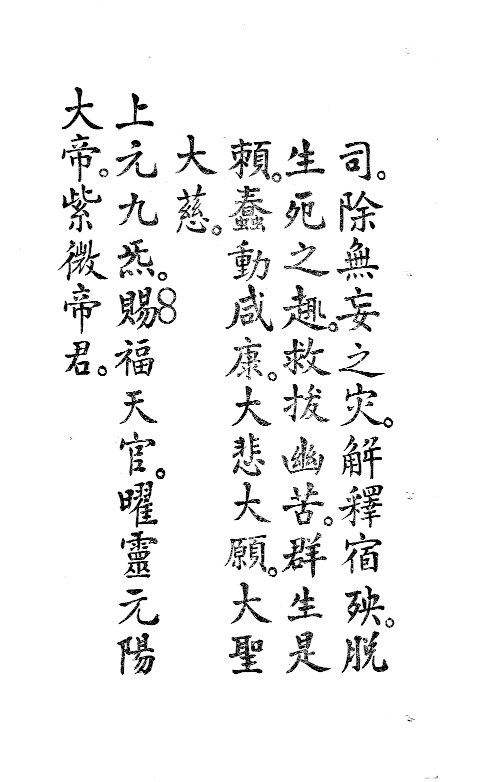 司。除無妄之灾。解釋宿殃。脫
生死之趣。救拔幽苦。群生是
賴。蠢動咸康。大悲大願。大聖
大慈。
上元九炁。賜福天官。曜靈元陽
大帝。紫微帝君。